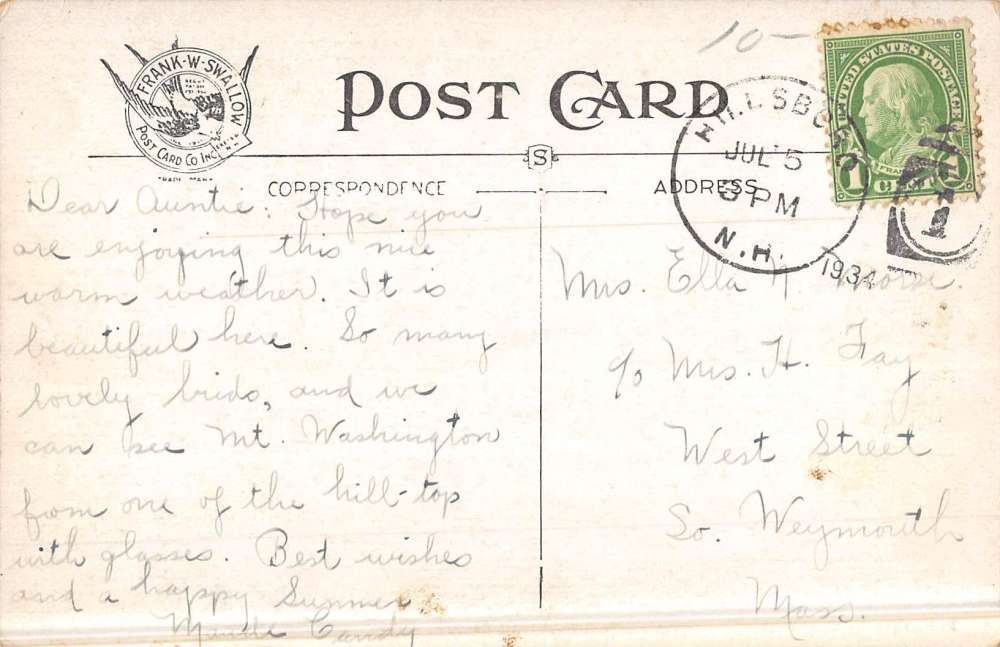 10-
FRANK-W-SWALLOW
POST CARD CO INC
TRADE MARK
POST CARD
S
CORRESPONDENCE
ADDRESS
HILLSBORO
JUL 5
3 PM
N.H.
1934
UNITED STATES POSTAGE
FRANKLIN
1 CENT 1
Dear Auntie: Hope you
are enjoying this nice
warm weather. It is
beautiful here. So many
lovely brids, and we
can see Mt. Washington
from one of the hill-top
with glasses. Best wishes
and a happy Summer.
Candy
Mrs. Ella Morse.
c/o Mrs. H. Fay
West Street
So. Weymouth
Mass.